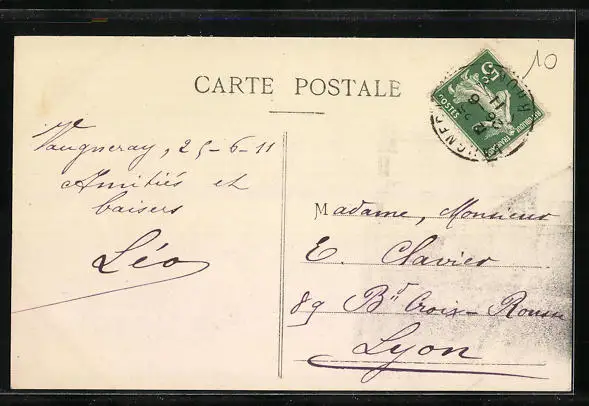 CARTE POSTALE
10
5c
POSTES
Vaugneray, 25-6-11
Amitiés et
baisers
Léo
Madame, Monsieur
E. Clavier
89 Bd Croix-Rousse
Lyon